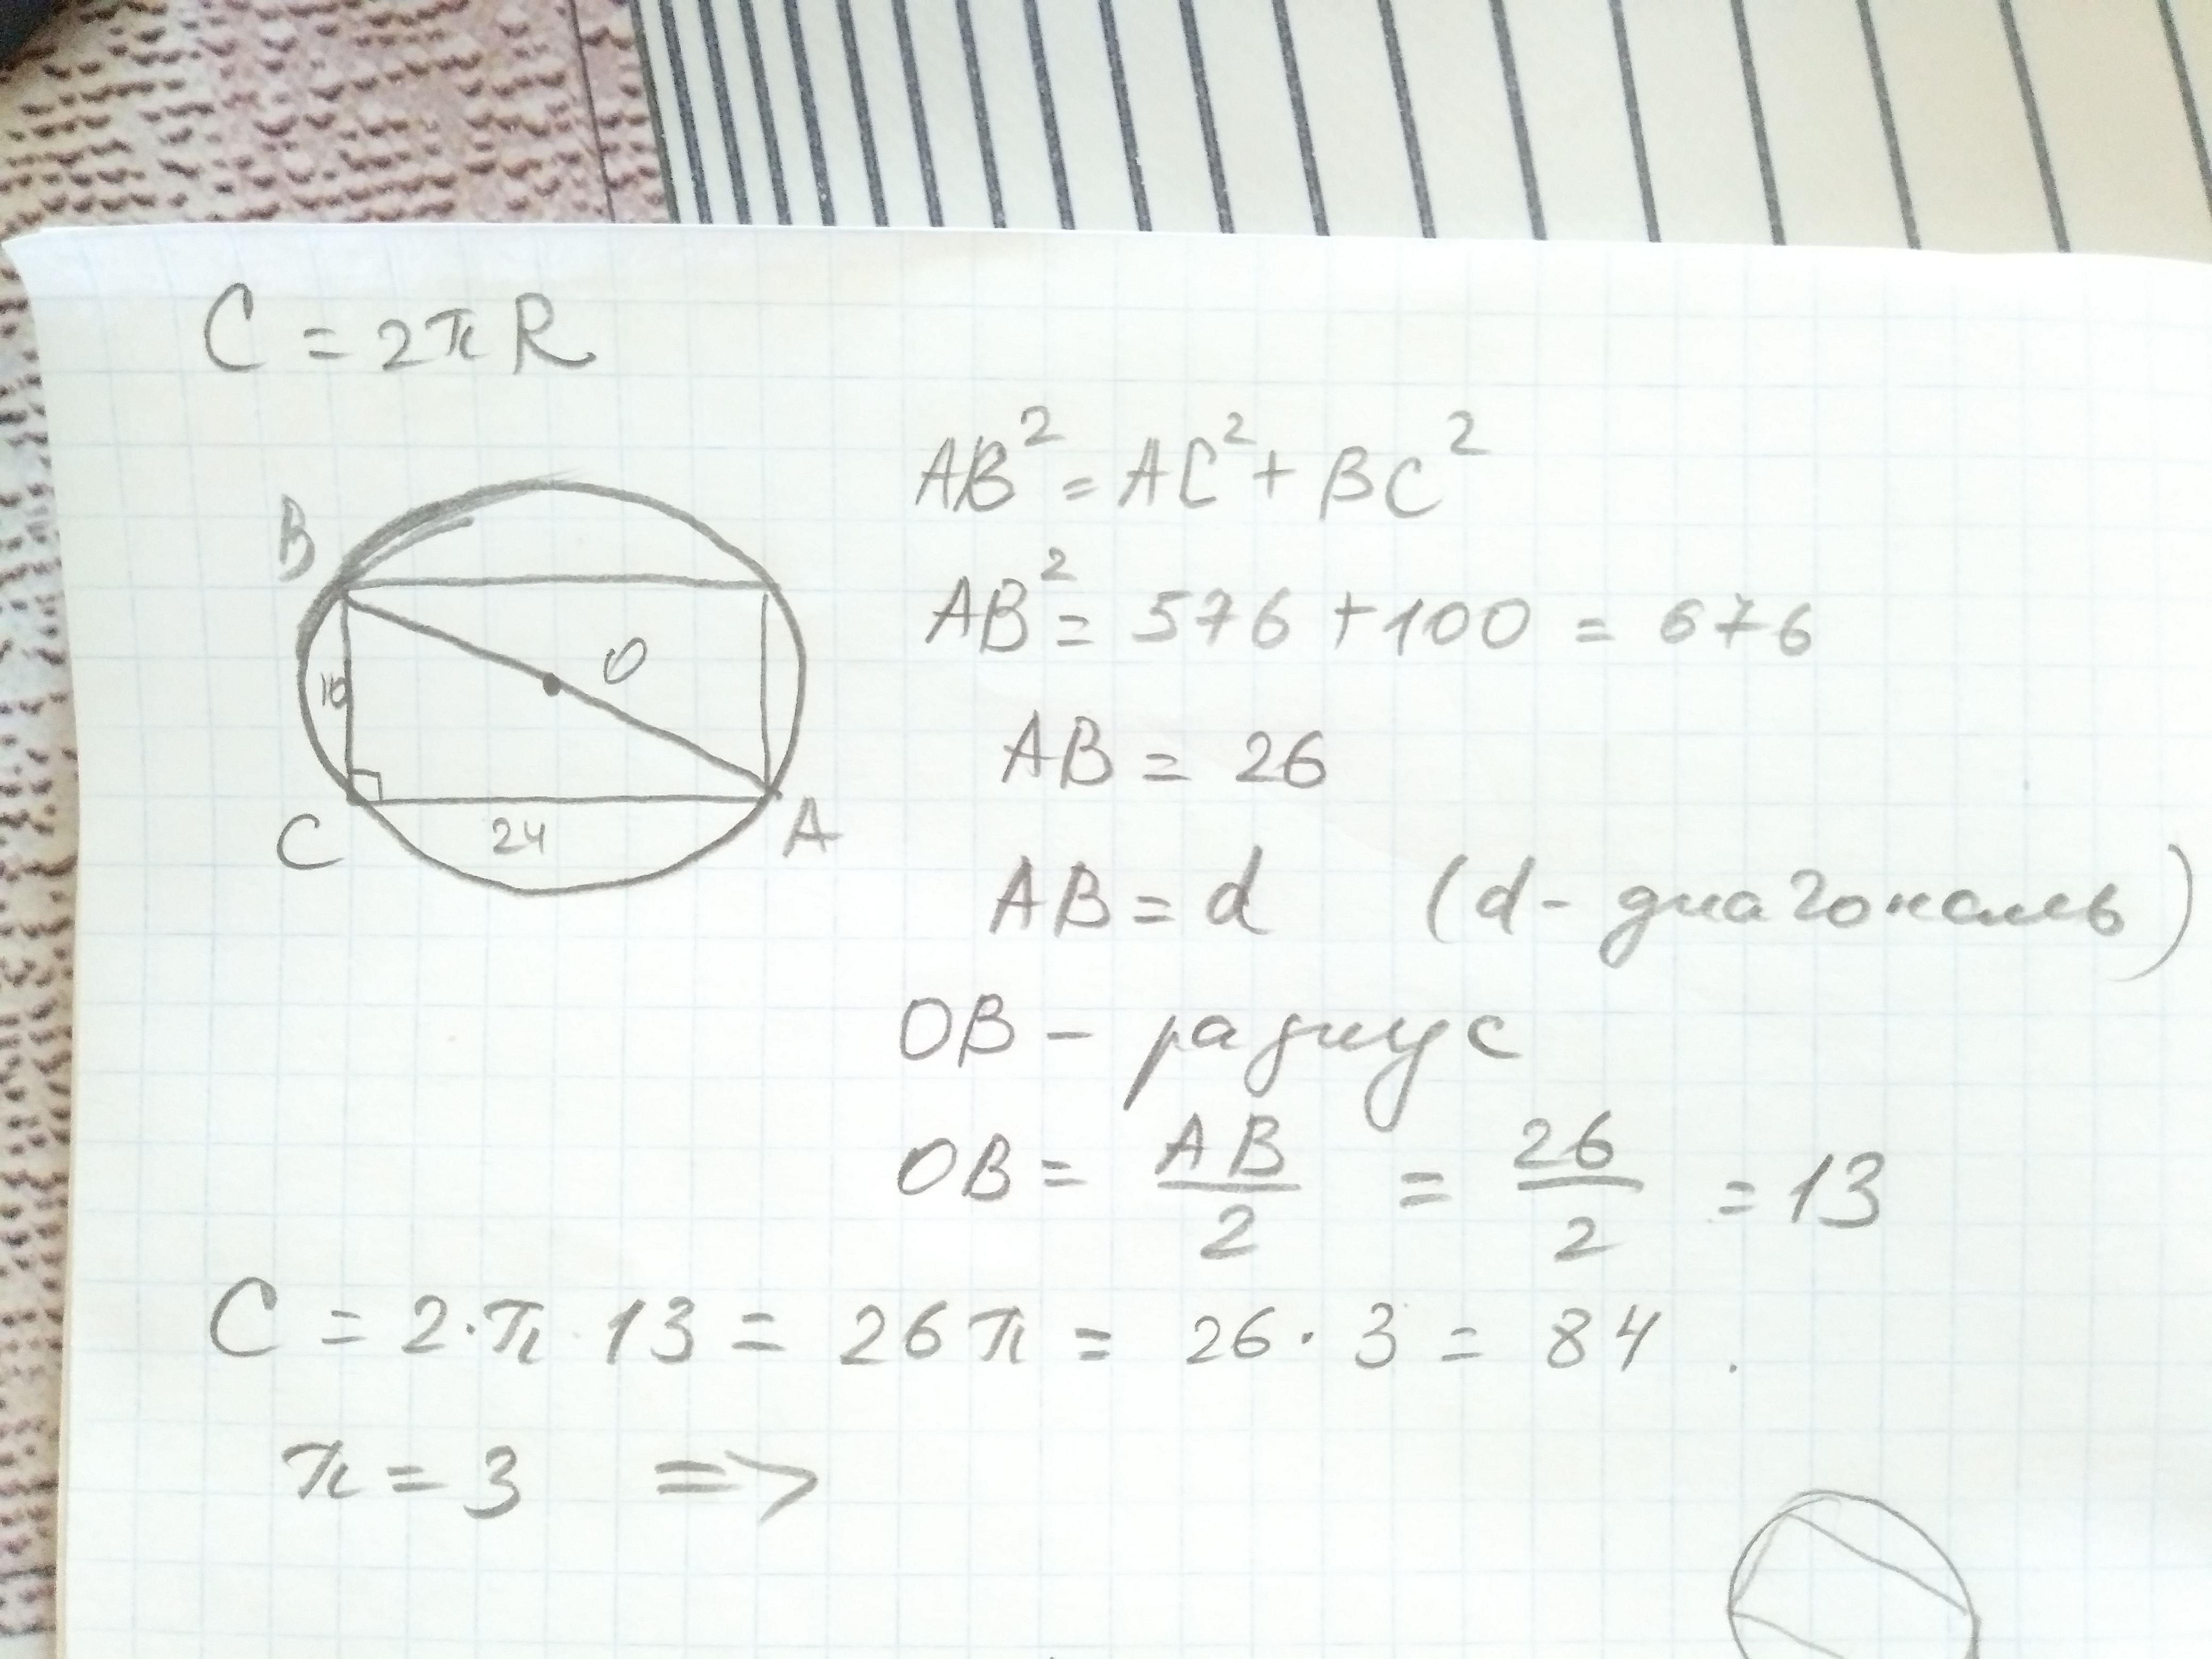 C = 2πR
AB² = AC² + BC²
AB² = 576 + 100 = 676
B
O
10
AB = 26
C
24
A
AB = d (d - диагональ)
OB - радиус
OB = AB/2 = 26/2 = 13
C = 2·π·13 = 26π = 26·3 = 84.
π = 3 =>